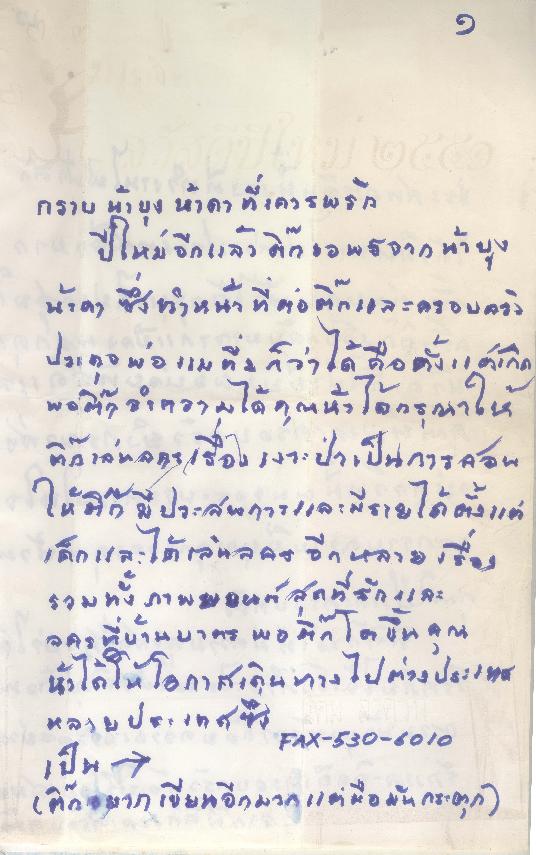 ๑
สวัสดีปีใหม่ ๒๕๕๑
กราบ น้ายุง น้าดา ที่เคารพรัก
ปีใหม่อีกแล้ว ติ๊กขอพรจากน้ายุง
น้าดา ซึ่งทำหน้าที่ต่อติ๊กและครอบครัว
ประดุจพ่อแม่ ก็ว่าได้ คือตั้งแต่เกิด
พอติ๊กจำความได้ คุณน้าได้กรุณาให้
ติ๊กเล่นละครเรื่อง เงาะป่าเป็นการสอน
ให้ติ๊ก มีประสบการและมีรายได้ตั้งแต่
เด็กและได้เล่นละครอีกหลายเรื่อง
รวมทั้ง ภาพยนต์ สุดที่รักและ
ละครที่บ้านบาตร พอติ๊กโตขึ้น คุณ
น้าได้ให้โอกาสเดินทางไปต่างประเทศ
หลายประเทศซึ่ง
FAX-530-6010
เป็น →
(ติ๊กอยากเขียนอีกมากแต่มือมันกระตุก)